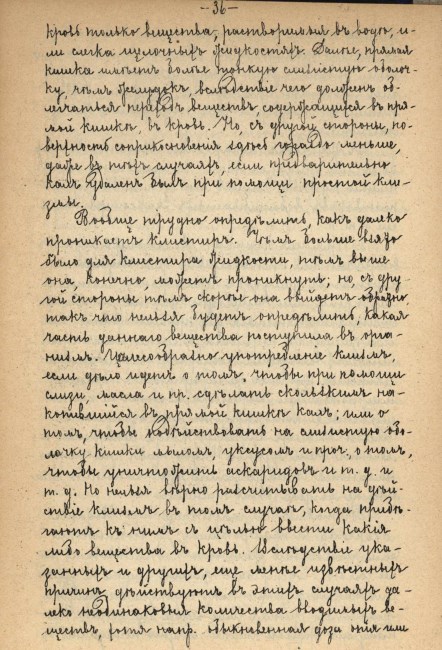 -36-
кровь только вещества, растворимыя въ водѣ, и-
ли слегка щелочныхъ жидкостяхъ. Далѣе, прямая
кишка имѣетъ болѣе тонкую слизистую оболоч-
ку, чѣмъ желудокъ, вслѣдствіе чего долженъ об-
легчаться переходъ веществъ, содержащихся въ пря-
мой кишкѣ, въ кровь. Но, съ другой стороны, по-
верхность соприкосновенія здѣсь гораздо меньше,
даже въ тѣхъ случаяхъ, если предварительно
калъ удаленъ былъ при помощи простой кли-
змы.
Вообще трудно опредѣлить, какъ далеко
проникаетъ клистиръ. Чѣмъ больше взято
было для клистира жидкости, тѣмъ выше
она, конечно, можетъ проникнуть; но, съ дру-
гой стороны тѣмъ скорѣе она выйдетъ обратно,
такъ что нельзя будетъ опредѣлить, какая
часть даннаго вещества поступила въ орга-
низмъ. Цѣлесообразно употребленіе клизмъ,
если дѣло идетъ о томъ, чтобы при помощи
слизи, масла и пр. сдѣлать скользкимъ на-
копившійся въ прямой кишкѣ калъ; или о
томъ, чтобы подѣйствовать на слизистую обо-
лочку кишки мыломъ, уксусомъ и проч., о томъ,
чтобы уничтожить аскаридовъ и т. д. и
т. д. Но нельзя вѣрно разсчитывать на дѣй-
ствіе клизмъ въ томъ случаѣ, когда прибѣ-
гаютъ къ нимъ съ цѣлью ввести какія
либо вещества въ кровь. Вслѣдствіе ука-
занныхъ и другихъ, еще менѣе извѣстныхъ
причинъ дѣйствуютъ въ этихъ случаяхъ да-
леко неодинаковыя количества вводимыхъ ве-
ществъ, хотя напр. обыкновенная доза опія или